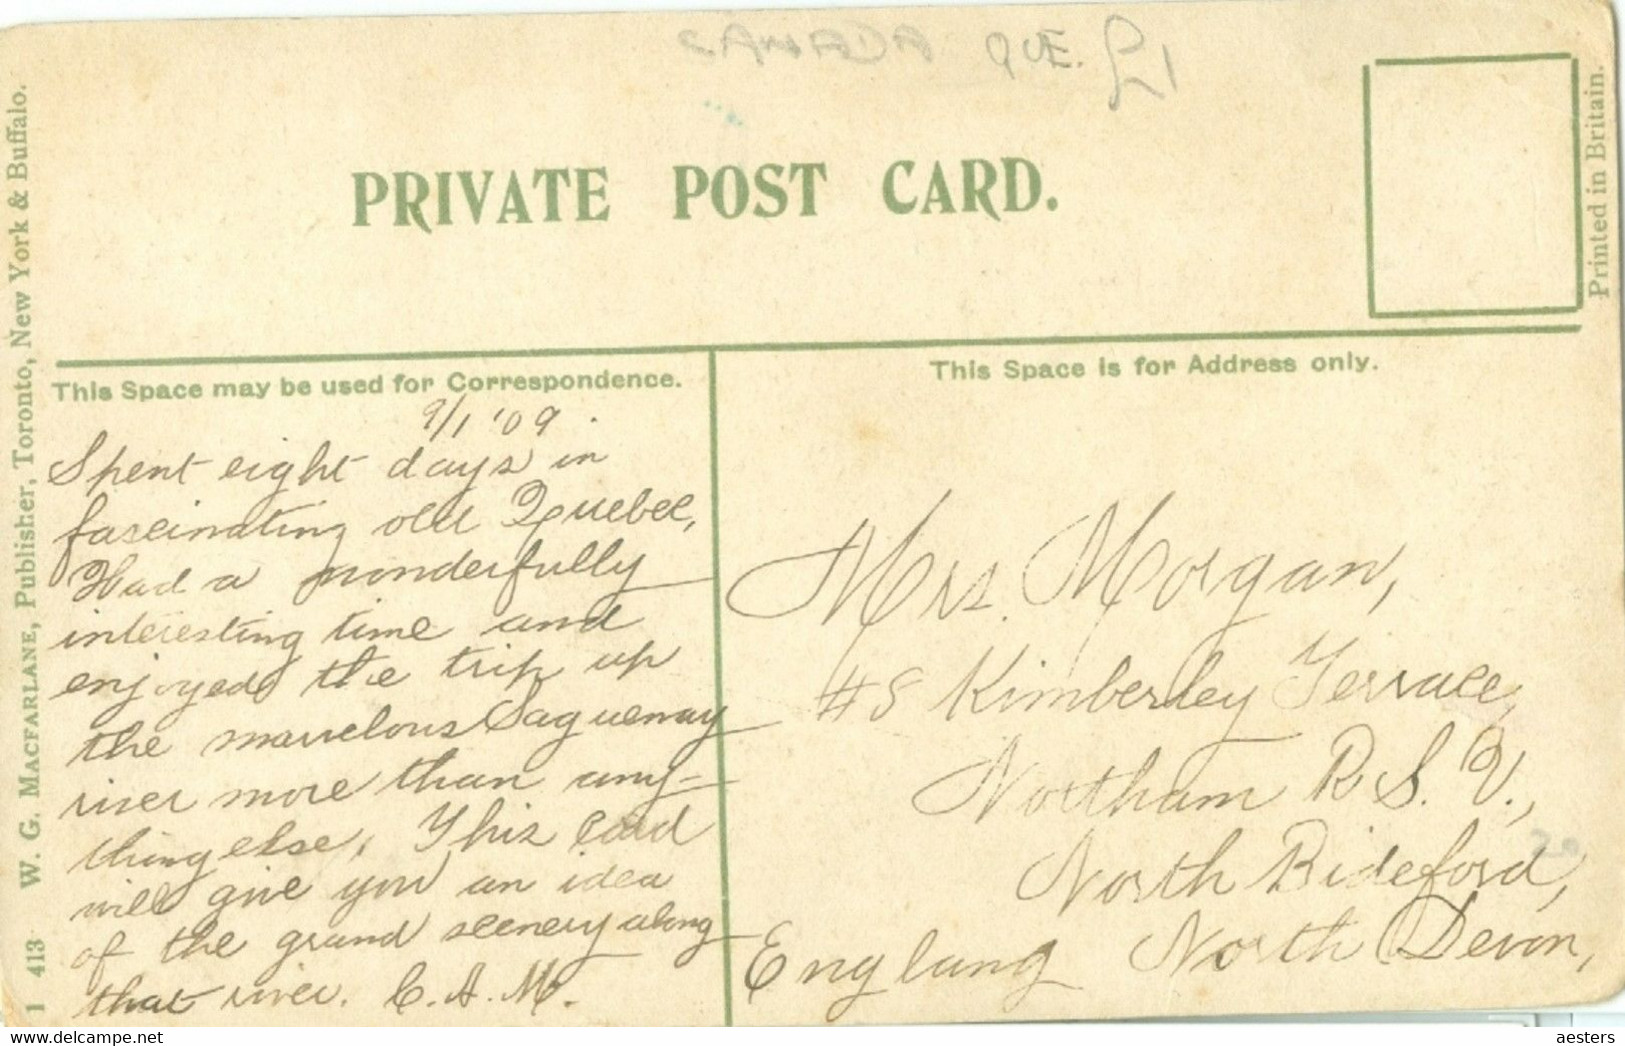 CANADA QUE. £1
PRIVATE POST CARD.
Printed in Britain.
1 413 W. G. MACFARLANE, Publisher, Toronto, New York & Buffalo.
This Space may be used for Correspondence.
9/1 '09.
Spent eight days in
fascinating old Quebec,
Had a wonderfully
interesting time and
enjoyed the trip up
the marvelous Saguenay
river more than any=
thing else, This card
will give you an idea
of the grand scenery along
that river. C. A. M.
This Space is for Address only.
Mrs. Morgan,
#8 Kimberley Terrace,
Northam R. S. V.,
North Bideford,
North Devon,
England
20
aesters